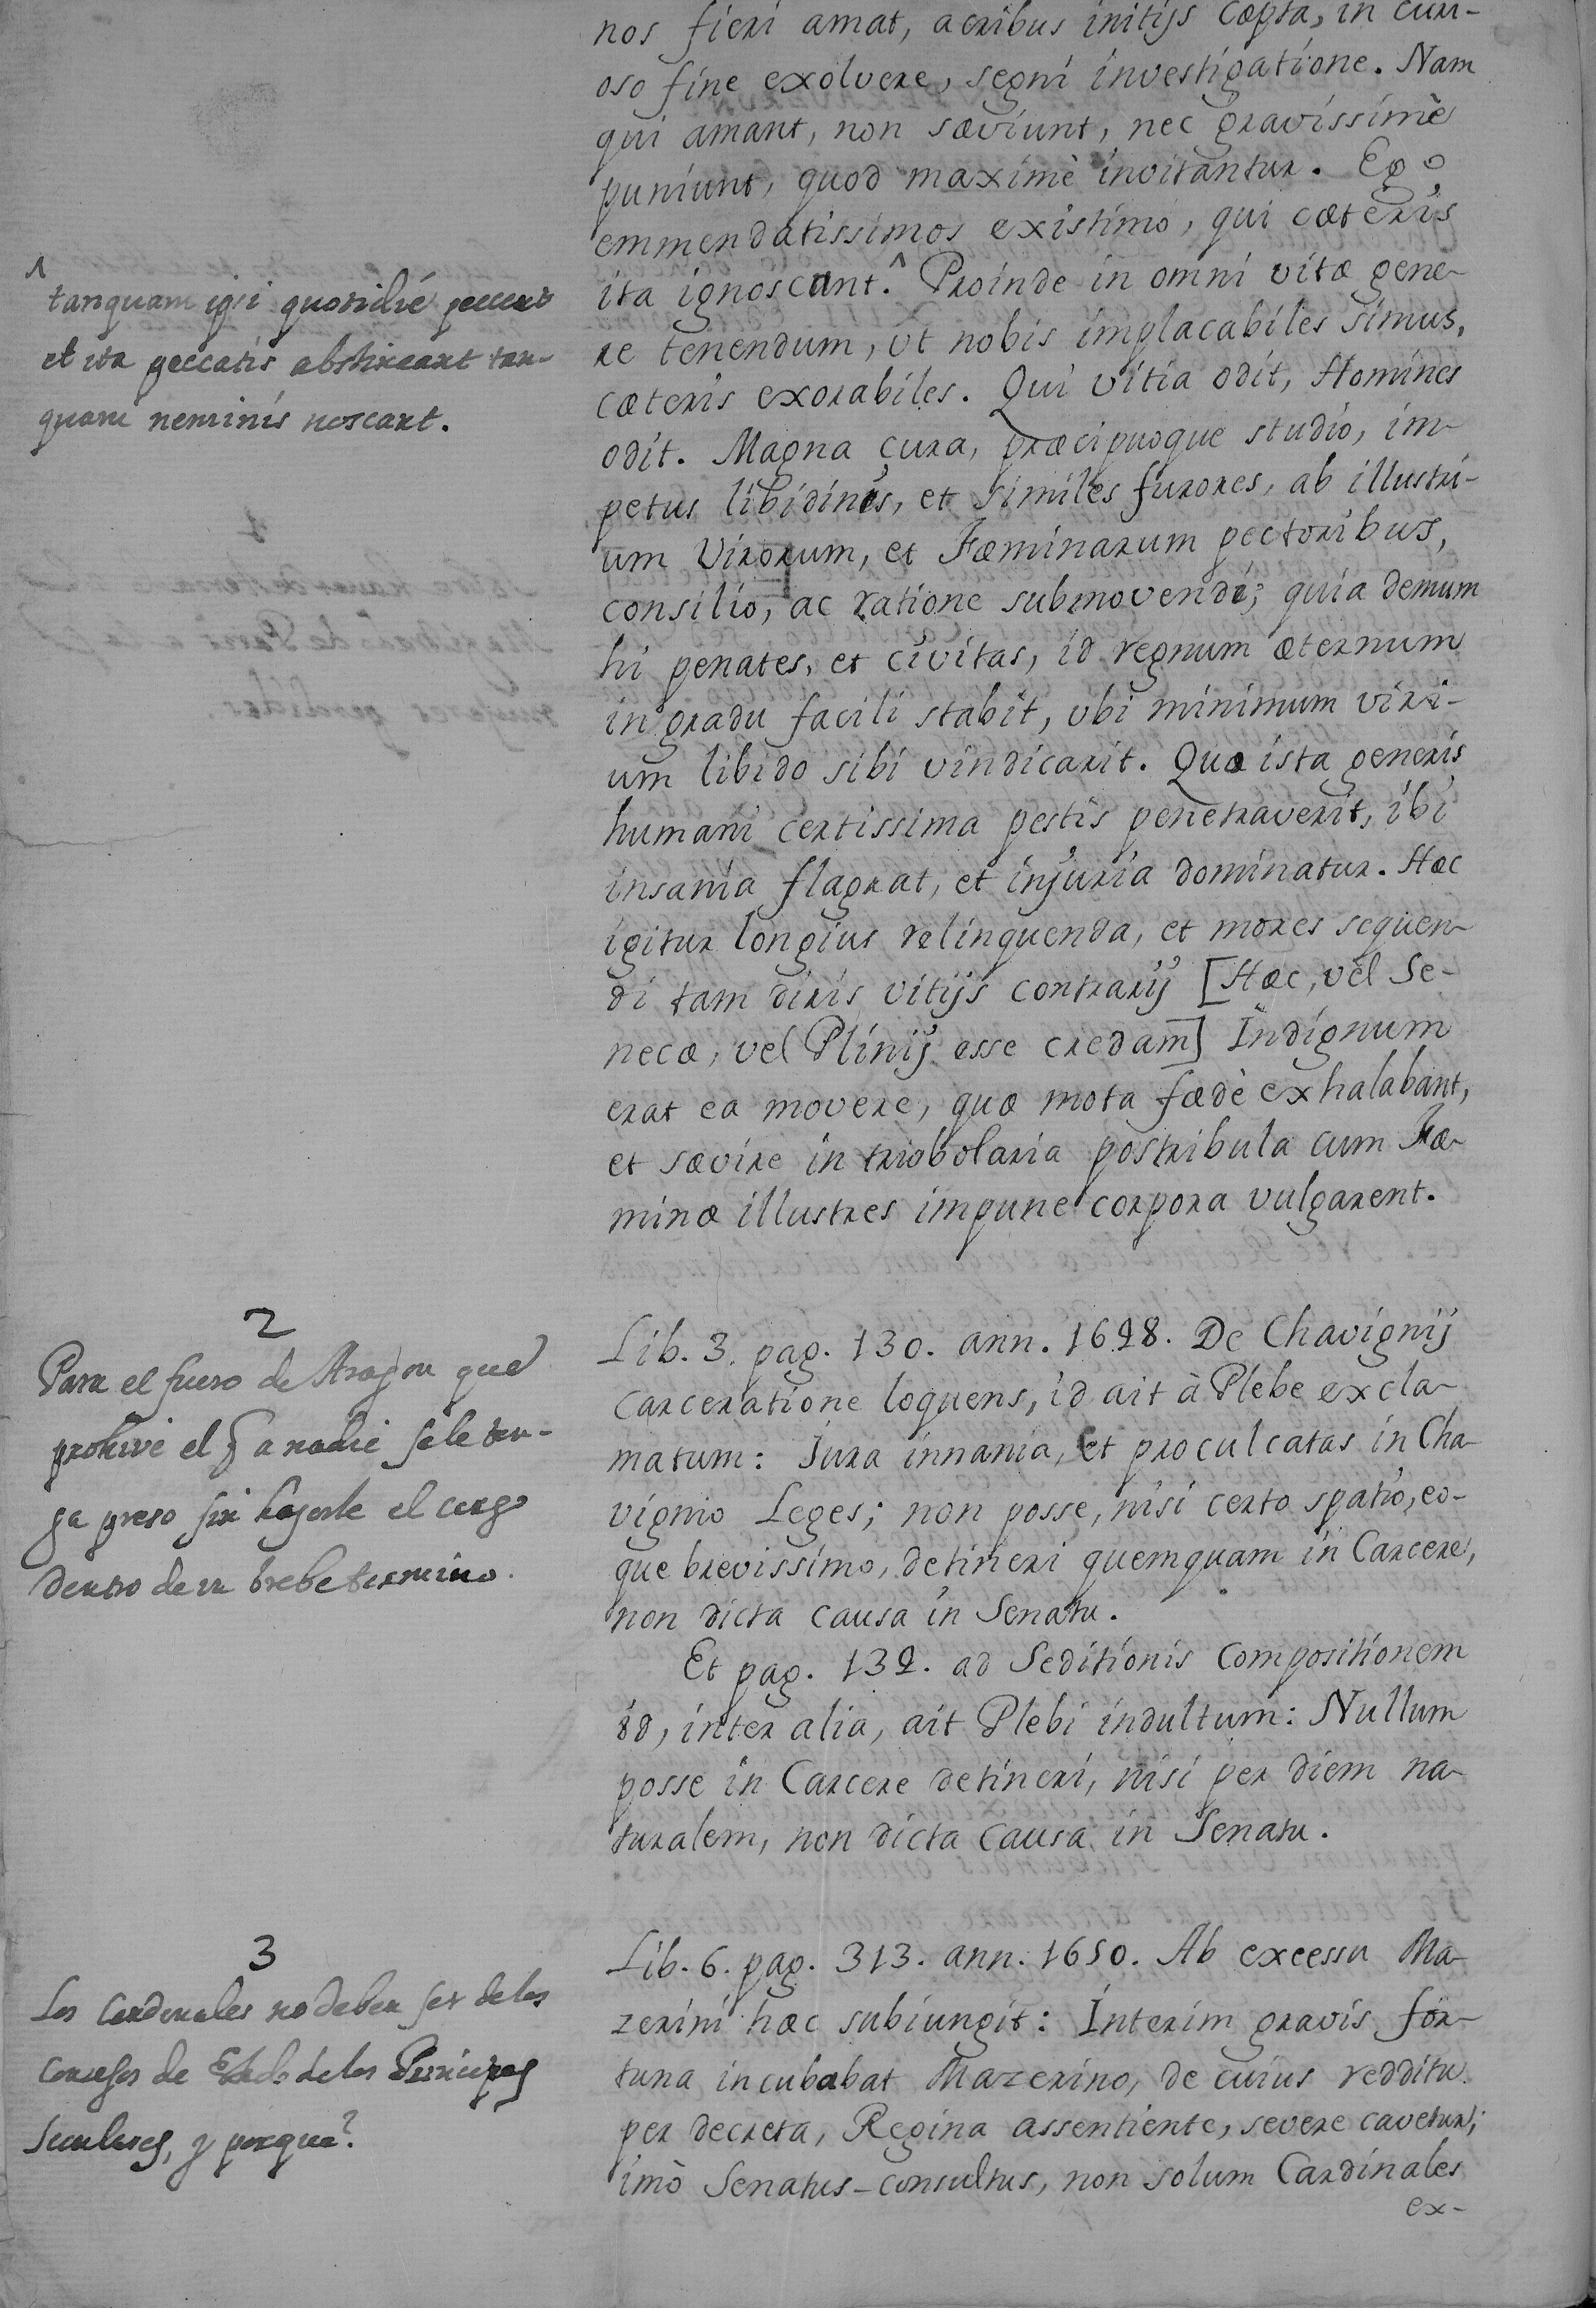 nos fieri amat, acribus initijs cæpta, in curi-
oso fine exolvere, segni investigatione. Nam
qui amant, non sæviunt, nec gravissimè
puniunt, quod maximè invitantur. Ego
emmendatissimos existimo, qui cæteris
ita ignoscant.^ Proinde in omni vitæ gene-
re tenendum, vt nobis implacabiles simus,
cæteris exorabiles. Qui vitia odit, Homines
odit. Magna cura, præcipuoque studio, im-
petus libidinis, et similes furores, ab illustri-
um Virorum, et Fæminarum pectoribus,
consilio, ac ratione submovendi; quia demum
hi penates, et civitas, id regnum æternum
in gradu facili stabit, vbi minimum viri-
um libido sibi vindicarit. Qua ista generis
humani certissima pestis penetraverit, ibi
insania flagrat, et injuria dominatur. Hæc
igitur longius relinquenda, et mores sequen-
di tam diris vitijs contrarij [Hæc, vel Se-
necæ, vel Plinij esse credam] Indignum
erat ea movere, quæ mota fædè exhalabant,
et sævire in triobolaria postribula cum Fæ-
minæ illustres impune corpora vulgarent.
^
tanquam ipsi quotidié peccent
et ita peccatis abstineant tan-
quam neminis noscant.
2
Para el fuero de Aragon que
prohive el q a nadie se le ten-
ga preso sin hajerle el cargo
dentro de un brebe termino.
Lib. 3. pag. 130. ann. 1628. De Chavignij
carceratione loquens, id ait à Plebe excla-
matum: Jura innania, et proculcatas in Cha-
vignio Leges; non posse, nisi certo spatio, eo-
que brevissimo, detineri quemquam in Carcere,
non dicta causa in Senatu.
Et pag. 132. ad Seditionis compositionem
id, inter alia, ait Plebi indultum: Nullum
posse in Carcere detineri, nisi per diem na-
turalem, non dicta causa in Senatu.
3
Los Cardenales no deben ser de los
consejos de Estado de los Principes
seculares, y porque?
Lib. 6. pag. 313. ann. 1650. Ab excessu Ma-
zerini hæc subiungit: Interim gravis for-
tuna incubabat Mazerino, de cuius redditu
per decreta, Regina assentiente, severe cavetur;
imò Senatus-consultus, non solum Cardinales
ex-